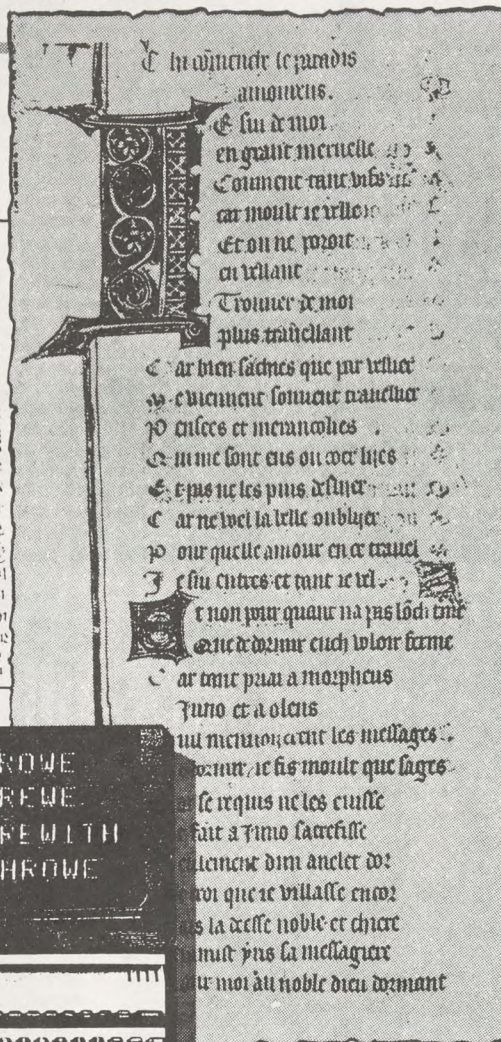 C hi cōmenche le paradis
amoureus.
E sui de moi
en grant merueille
Coment tant vifs
car moult ie velle
Et on ne poroit
en vellant
Trouuer de moi
plus trauellant
C ar bien sachies que par vellier
M e viennent souuent trauellier
P ensees et merancolies
Q ui me sont ens ou coer liees
E t pas ne les puis deslijer
C ar ne voel la belle oublijer
P our quelle amour en ce trauel
J e sui entres et tant ie vel
E t non pour quant na pas lōc tme
Que de dormir euch voloir ferme
C ar tant priai a morpheus
Juno et a oleus
les messages
dormir, ie fis moult que sages
se requis ne les euisse
fait a Juno sacrefisse
dun anelet dor
croi que ie villasse encor
la deesse noble et chiere
yris sa messagiere
our moi au noble dieu dormant
ROWE
REWE
REWITH
HROWE